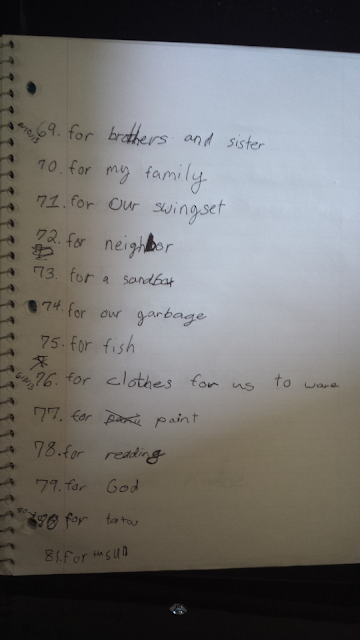 69. for brothers and sister
70. for my family
71. for our swingset
72. for neighbor
73. for a sandbox
74. for our garbage
75. for fish
76. for clothes for us to ware
77. for paint
78. for reading
79. for God
for
81. for the sun